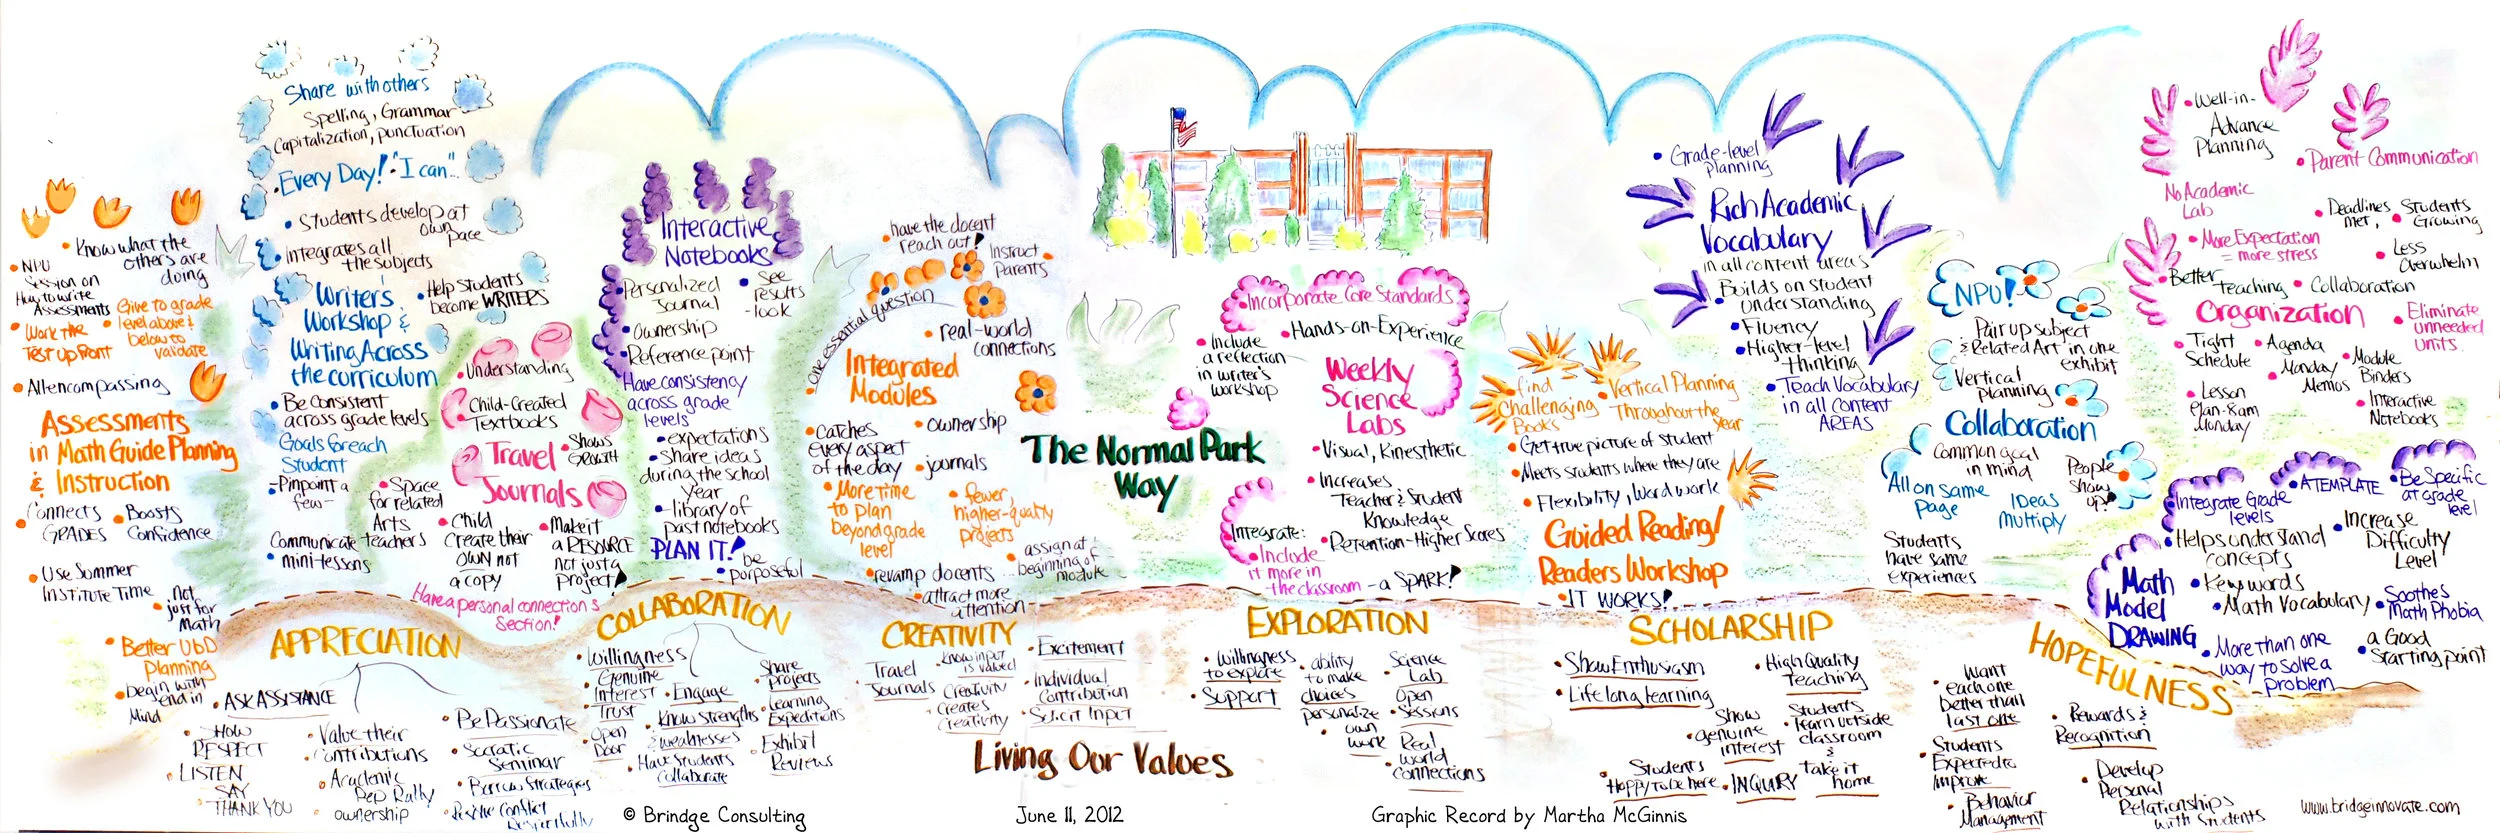 Know what the
others are
doing
NPU
Session on
How to write
Assessments
Give to grade
level above &
below to
validate
Work the
Test up front
All encompassing
Assessments
in Math Guide Planning
& Instruction
Connects
GRADES
Boosts
Confidence
Use Summer
Institute Time
not
just for
Math
Better UbD
Planning
begin with
end in
Mind
Share with others
Spelling, Grammar
Capitalization, punctuation
Every Day! "I can"..
Students develop at
own
pace
Integrates all
the subjects
Writer's
Workshop &
Writing Across
the curriculum
Help Students
become WRITERS
Be Consistent
across grade levels
Goals for each
Student
-Pinpoint a
few-
Communicate teachers
mini-lessons
Understanding
Child-Created
Textbooks
Travel
Journals
Shows
Growth
Space
for related
Arts
Child
Create their
own not
a copy
Make it
a RESOURCE
not just a
project!
Have a personal connections
Section!
Interactive
Notebooks
Personalized
Journal
See
results
-look
Ownership
Reference point
Have consistency
across grade
levels
expectations
share ideas
during the school
year
-library of
past notebooks
PLAN IT!
be
purposeful
have the docent
reach out!
Instruct
Parents
One essential question
real-world
connections
Integrated
Modules
ownership
catches
every aspect
of the day
journals
More time
to plan
beyond grade
level
fewer,
higher-quality
projects
revamp docents
assign at
beginning of
module
attract more
attention
The Normal Park
Way
Incorporate Core Standards
Hands-on-Experience
Include
a reflection
in writer's
workshop
Weekly
Science
Labs
Visual, Kinesthetic
Increases
Teacher & Student
Knowledge
Retention-Higher Scores
Integrate:
Include
it more in
the classroom
- a SPARK!
find
Challenging
Books
Vertical Planning
Throughout the
Year
Get true picture of student
Meets students where they are
Flexibility, Word work
Guided Reading/
Readers Workshop
IT WORKS!
Grade-level
planning
Rich Academic
Vocabulary
in all content areas
Builds on student
understanding
Fluency
Higher-level
thinking
Teach Vocabulary
in all content
AREAS
NPU!
Pair up subject
& Related Art in one
exhibit
Vertical
planning
Collaboration
Common goal
in mind
People
show
up!
All on same
page
IDEAS
multiply
Students
have same
experiences
Well-in-
Advance
Planning
Parent Communication
No Academic
Lab
Deadlines
met,
Students
Growing
More Expectation
= more stress
Less
Overwhelm
Better
teaching
Collaboration
Organization
Eliminate
unneeded
units.
Tight
Schedule
Agenda
Monday
Memos
Module
Binders
Lesson
Plan-8am
Monday
Interactive
Notebooks
Integrate Grade
levels
A TEMPLATE
Be Specific
at grade
level
Helps understand
concepts
Increase
Difficulty
Level
Math
Model
DRAWING
Key words
Math Vocabulary
Soothes
Math Phobia
More than one
way to solve a
problem
a Good
Starting point
APPRECIATION
ASK ASSISTANCE
Show
RESPECT
LISTEN
SAY
THANK YOU
Value their
Contributions
Academic
Pep Rally
ownership
Be Passionate
Socratic
Seminar
Borrow Strategies
Resolve Conflict
Respectfully
COLLABORATION
Willingness
Genuine
Interest
Trust
Open
Door
Engage
Know Strengths
& weaknesses
Have Students
Collaborate
Share
projects
Learning
Expeditions
Exhibit
Reviews
CREATIVITY
Travel
Journals
Know input
is valued
Creativity
Creates
Creativity
Excitement
Individual
Contribution
Solicit Input
Living Our Values
EXPLORATION
Willingness
to explore
Support
ability
to make
choices
personalize
own
work
Science
Lab
Open
Sessions
Real
world
connections
SCHOLARSHIP
Show Enthusiasm
Life long learning
High Quality
Teaching
Show
genuine
interest
Students
learn outside
classroom
&
take it
home
Students
Happy to be here
INQUIRY
HOPEFULNESS
Want
each one
better than
last one
Students
Expected to
Improve
Behavior
Management
Rewards &
Recognition
Develop
Personal
Relationships
with Students
© Brindge Consulting
June 11, 2012
Graphic Record by Martha McGinnis
www.bridgeinnovate.com